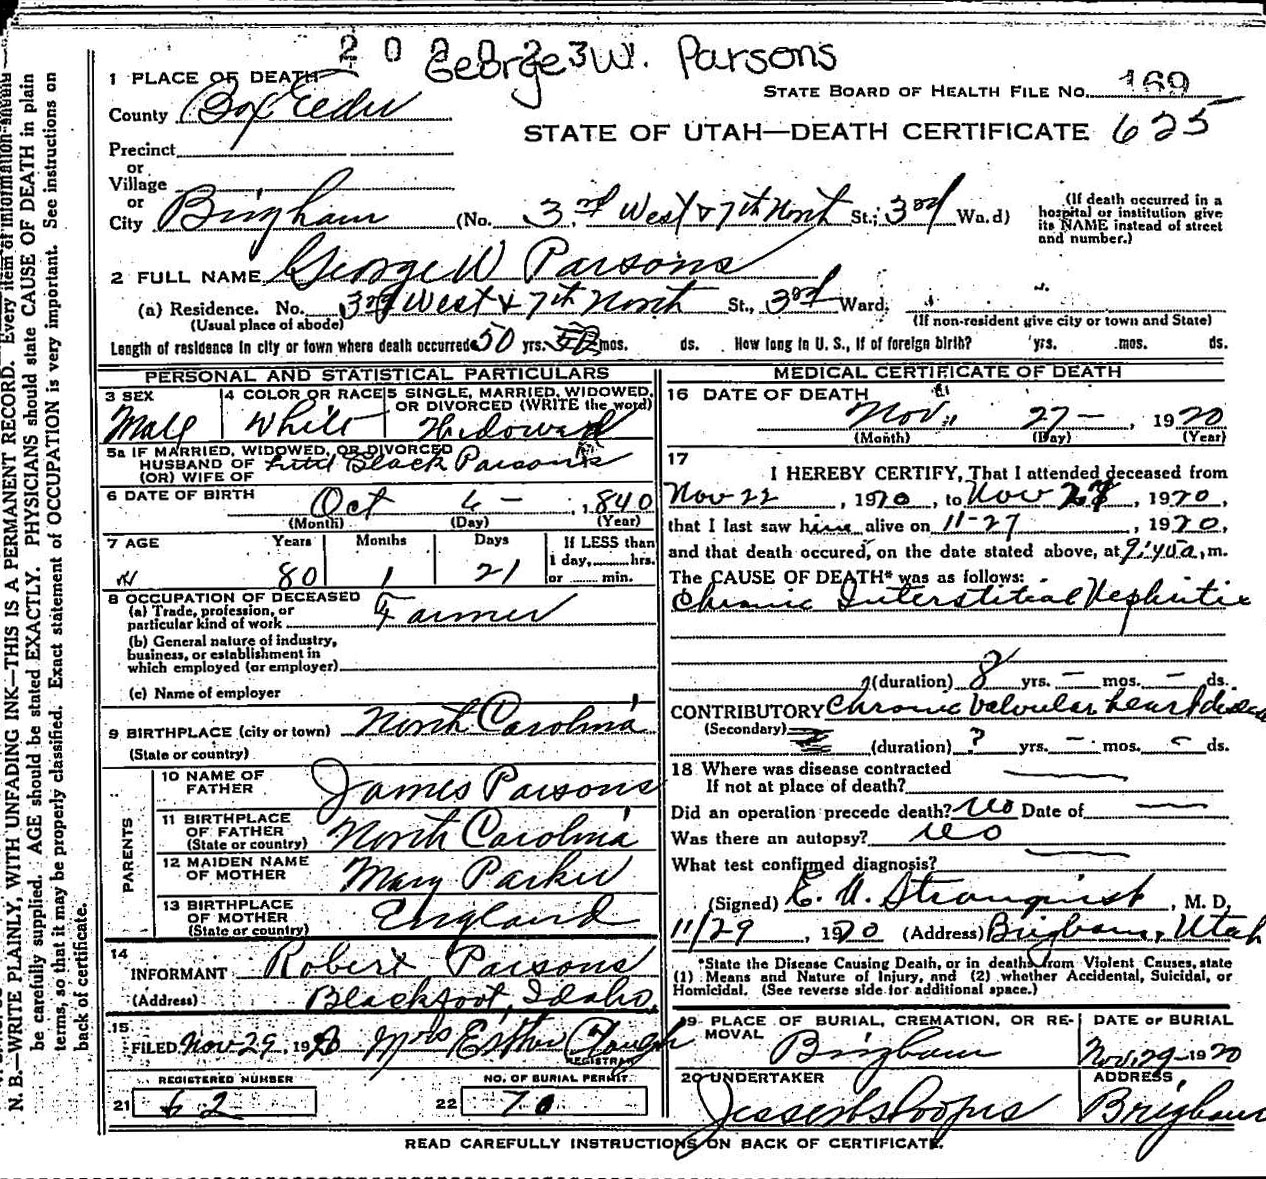 20 0 2 3
George W. Parsons
1 PLACE OF DEATH
STATE BOARD OF HEALTH FILE No. 169
County Box Elder
STATE OF UTAH—DEATH CERTIFICATE 625
Precinct
or
Village
or
City Brigham (No. 3rd West & 7th North St.; 3rd Wa.d)
(If death occurred in a
hospital or institution give
its NAME instead of street
and number.)
2 FULL NAME George W Parsons
(a) Residence. No. 3rd West & 7th North St., 3rd Ward.
(Usual place of abode) (If non-resident give city or town and State)
Length of residence in city or town where death occurred 50 yrs. mos. ds. How long in U. S., if of foreign birth? yrs. mos. ds.
PERSONAL AND STATISTICAL PARTICULARS
3 SEX 4 COLOR OR RACE 5 SINGLE, MARRIED, WIDOWED,
OR DIVORCED (WRITE the word)
Male White Widowed
5a IF MARRIED, WIDOWED, OR DIVORCED
HUSBAND OF Black Parsons
(OR) WIFE OF
6 DATE OF BIRTH Oct 6 - , 1840
(Month) (Day) (Year)
7 AGE Years Months Days If LESS than
1 day, hrs.
80 1 21 or min.
8 OCCUPATION OF DECEASED
(a) Trade, profession, or
particular kind of work Farmer
(b) General nature of industry,
business, or establishment in
which employed (or employer)
(c) Name of employer
9 BIRTHPLACE (city or town) North Carolina
(State or country)
PARENTS
10 NAME OF
FATHER James Parsons
11 BIRTHPLACE
OF FATHER North Carolina
(State or country)
12 MAIDEN NAME
OF MOTHER Mary Parker
13 BIRTHPLACE
OF MOTHER England
(State or country)
14
INFORMANT Robert Parsons
(Address) Blackfoot, Idaho.
15
FILED Nov 29, 1920 Mrs Esther Clough
REGISTRAR
REGISTERED NUMBER NO. OF BURIAL PERMIT
21 62 22 70
MEDICAL CERTIFICATE OF DEATH
16 DATE OF DEATH
Nov. 27 - , 1920
(Month) (Day) (Year)
17
I HEREBY CERTIFY, That I attended deceased from
Nov 22 , 1920 , to Nov 27 , 1920,
that I last saw him alive on 11-27 , 1920,
and that death occured, on the date stated above, at m.
The CAUSE OF DEATH* was as follows:
Chronic Interstitial Nephritis
(duration) 8 yrs. - mos. - ds.
CONTRIBUTORY Chronic Valvular heart disease
(Secondary)
(duration) ? yrs. - mos. - ds.
18 Where was disease contracted
If not at place of death?
Did an operation precede death? no Date of
Was there an autopsy? no
What test confirmed diagnosis?
(Signed) , M. D.
11/29 , 1920 (Address) Brigham, Utah
*State the Disease Causing Death, or in deaths from Violent Causes, state
(1) Means and Nature of Injury, and (2) whether Accidental, Suicidal, or
Homicidal. (See reverse side for additional space.)
19 PLACE OF BURIAL, CREMATION, OR RE-
MOVAL
DATE OF BURIAL
Brigham Nov. 29 - 1920
20 UNDERTAKER ADDRESS
Brigham
READ CAREFULLY INSTRUCTIONS ON BACK OF CERTIFICATE.
N. B.—WRITE PLAINLY, WITH UNFADING INK—THIS IS A PERMANENT RECORD. Every item of information should
be carefully supplied. AGE should be stated EXACTLY. PHYSICIANS should state CAUSE OF DEATH in plain
terms, so that it may be properly classified. Exact statement of OCCUPATION is very important. See instructions on
back of certificate.